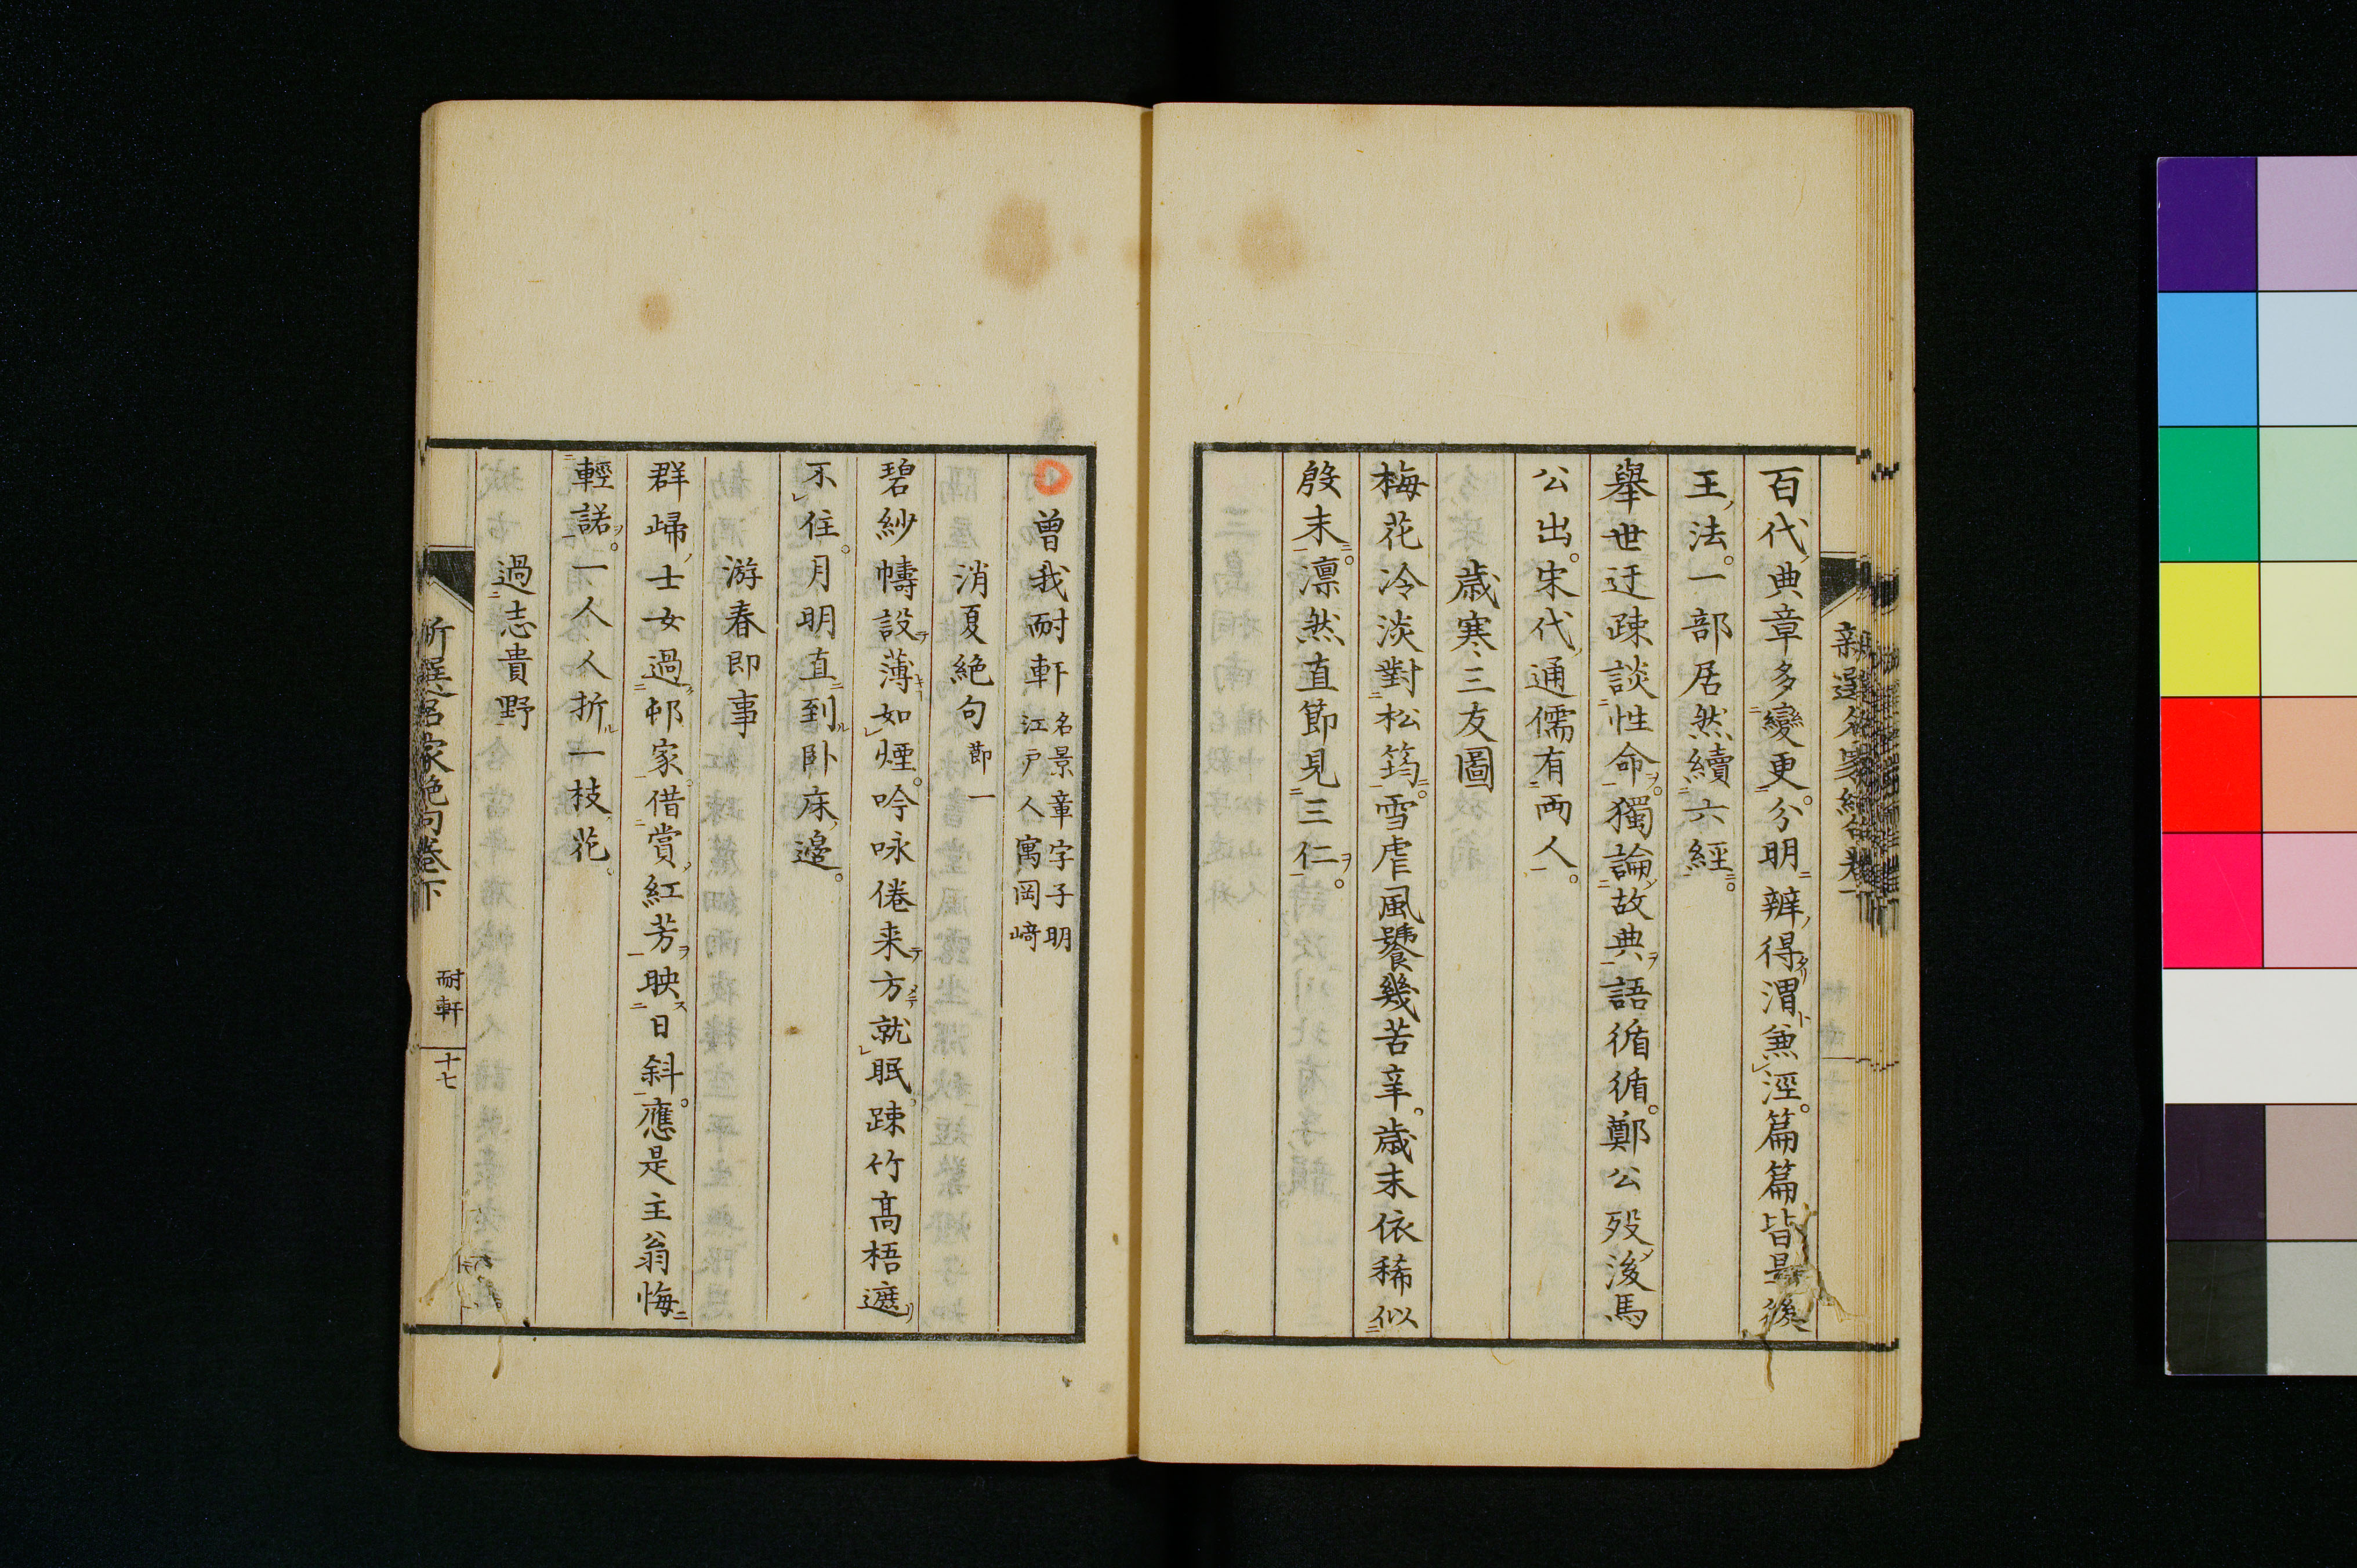 百代典章多變更分明辨得渭兼涇篇篇皆是後
王法一部居然續六經
舉世迂疎談性命獨論故典語循循鄭公歿後馬
公出宋代通儒有両人
歳寒三友圖
梅花冷淡對松筠雪虐風饕幾苦辛歳末依稀似
殷末凛然直節見三仁
曽我耐軒 名景章字子明
江戸人寓岡﨑
消夏絶句 節一
碧紗幬設薄如煙吟咏倦来方就眠踈竹髙梧遮
不住月明直到卧床邉
游春即事
群歸士女過邨家借賞紅芳映日斜應是主翁悔
輕諾一人人折一枝花
過志貴野
新選名家絶句巻下
耐軒
十七